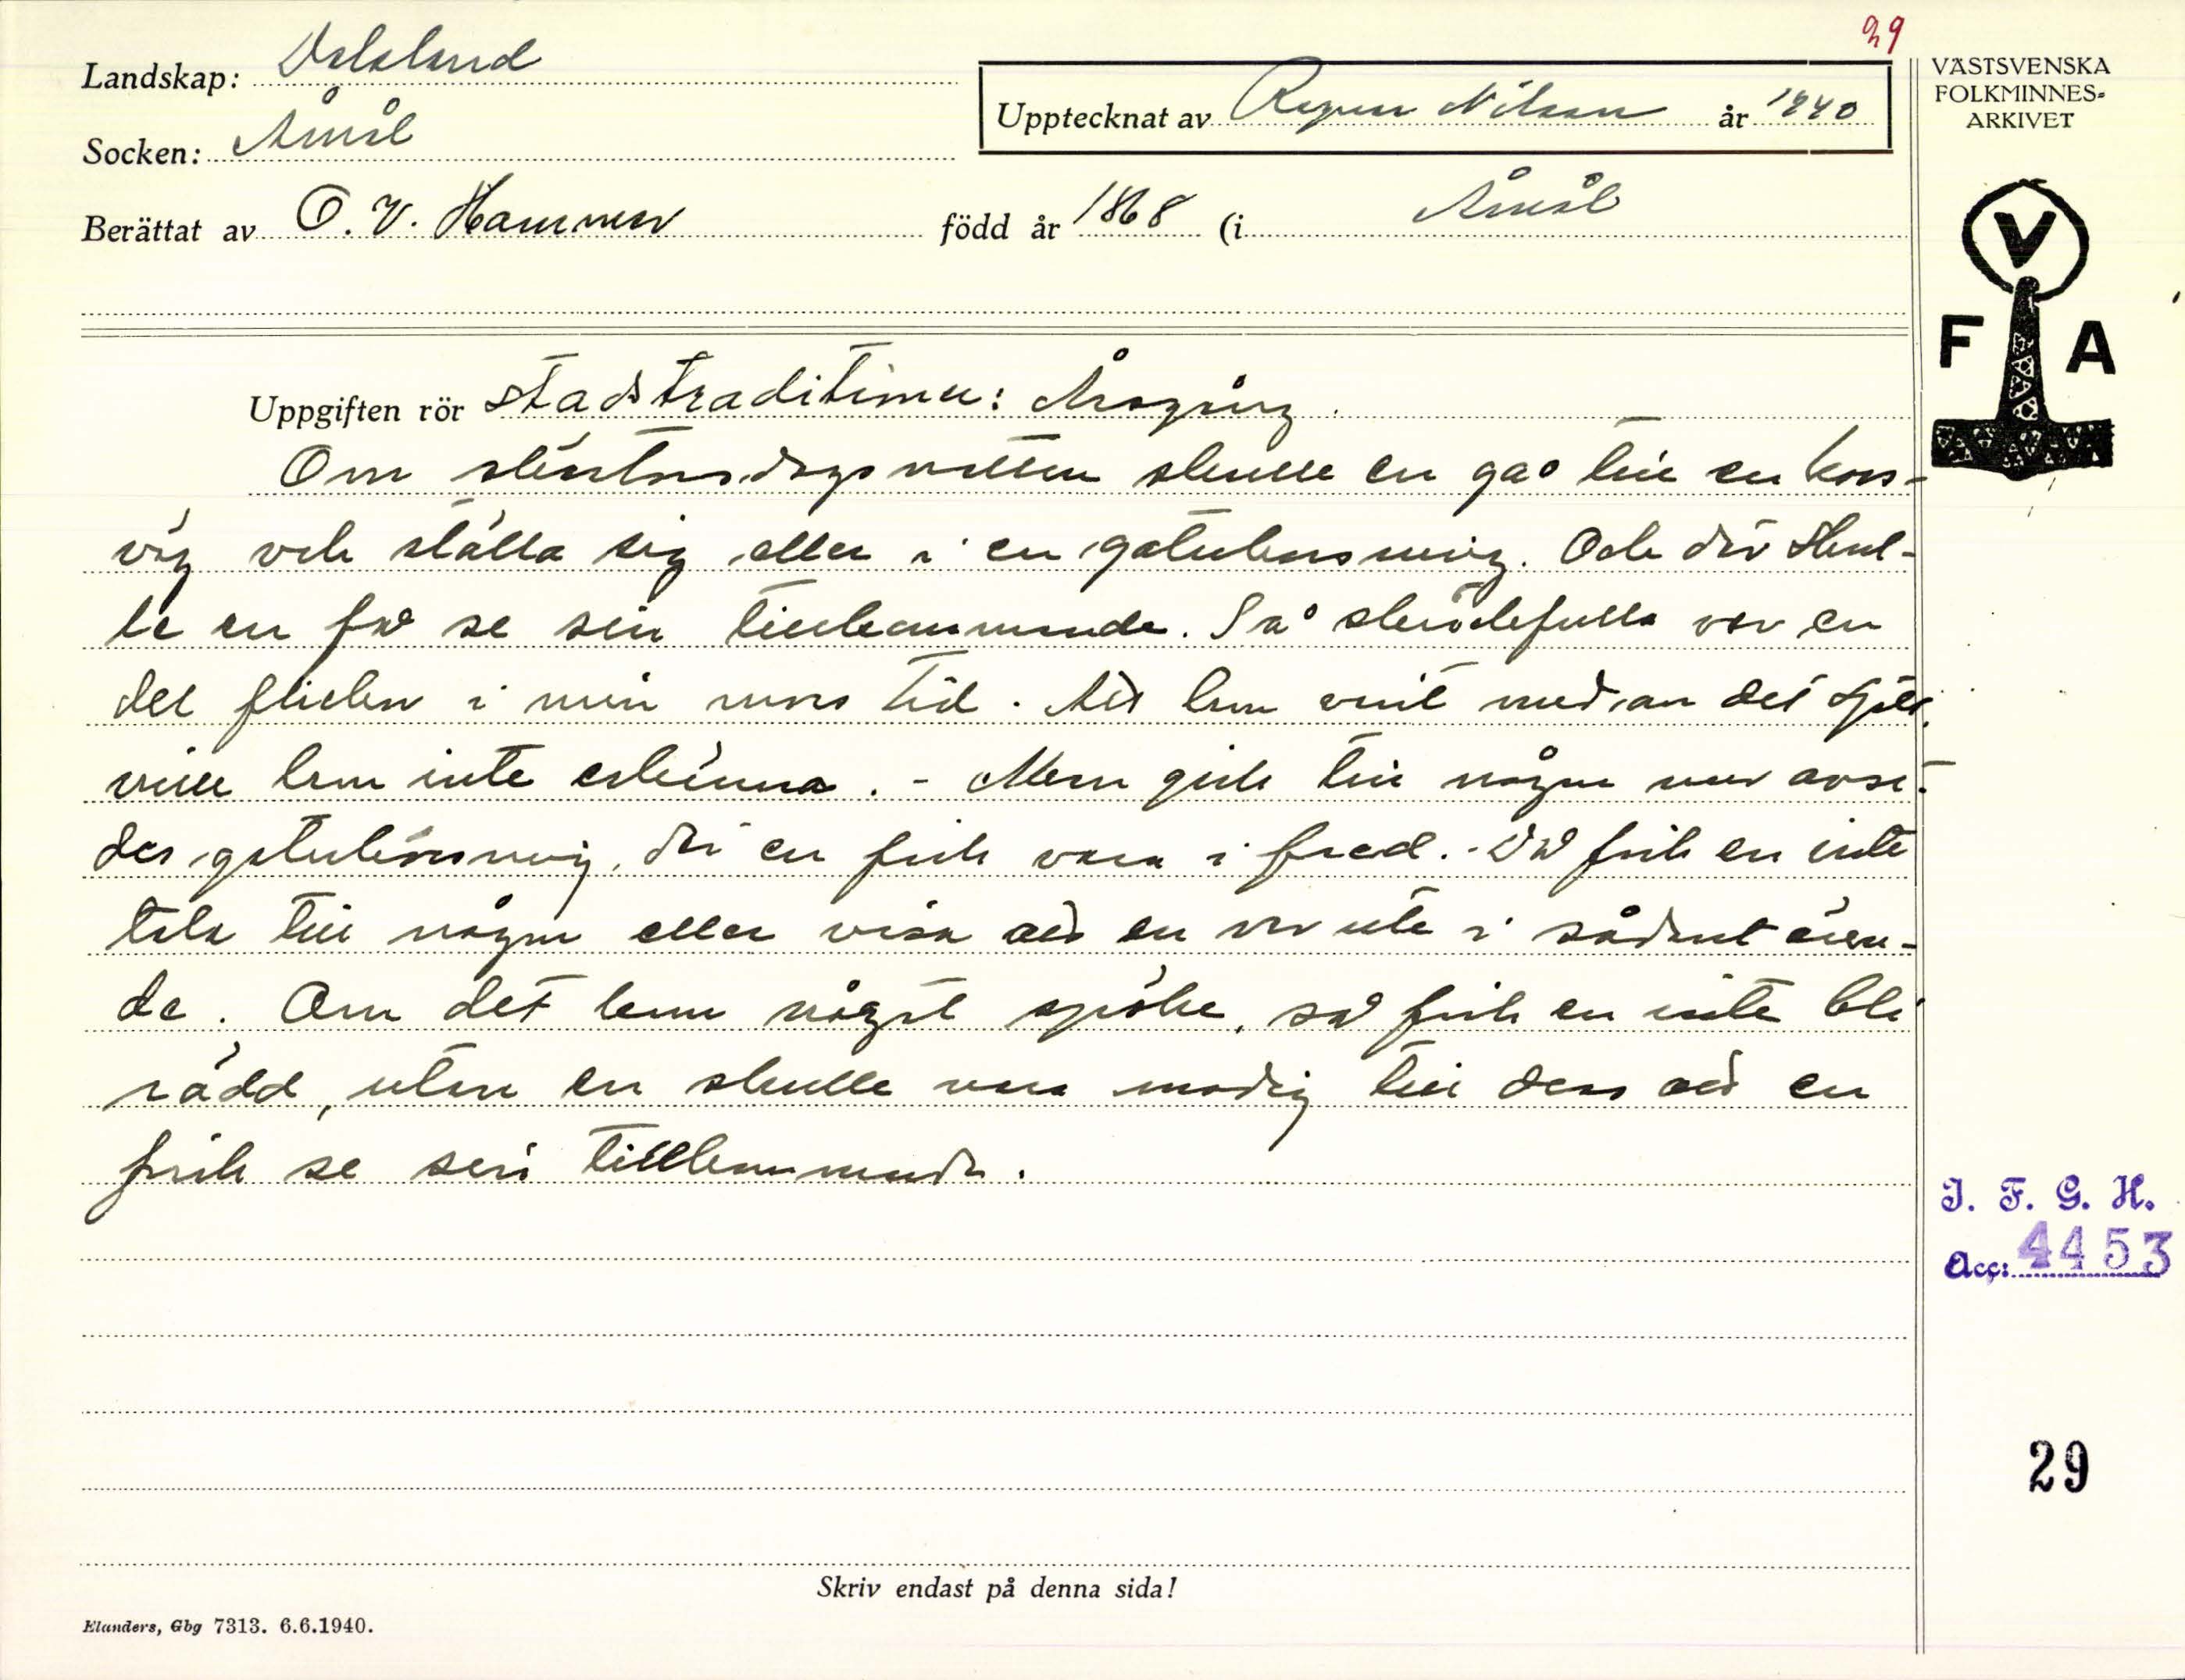 29
Landskap: Dalsland
Socken: Åmål
Upptecknat av Ragnar Nilsson år 1940
Berättat av O. V. Hammar född år 1868 (i Åmål
VÄSTSVENSKA
FOLKMINNES-
ARKIVET
V
F A
Uppgiften rör stadstraditioner: Årsgång.
Om skärtorsdagsnatten skulle en gå till en kors-
väg och ställa sig eller i en gatukorsning. Och där skul-
le en få se sin tillkommande. Så skrockfulla var en
del flickor i min mors tid. Att hon varit med om det själv
vill hon inte erkänna. - Men gick till någon mer avsi-
des gatukorsning, där en fick vara i fred. - Då fick en inte
tala till någon eller visa att en var ute i sådant ären-
de. Om det kom något spöke, så fick en inte bli
rädd, utan en skulle vara modig till dess att en
fick se sin tillkommande.
I. F. G. H.
Acc: 4453
29
Skriv endast på denna sida!
Elanders, Gbg 7313. 6.6.1940.